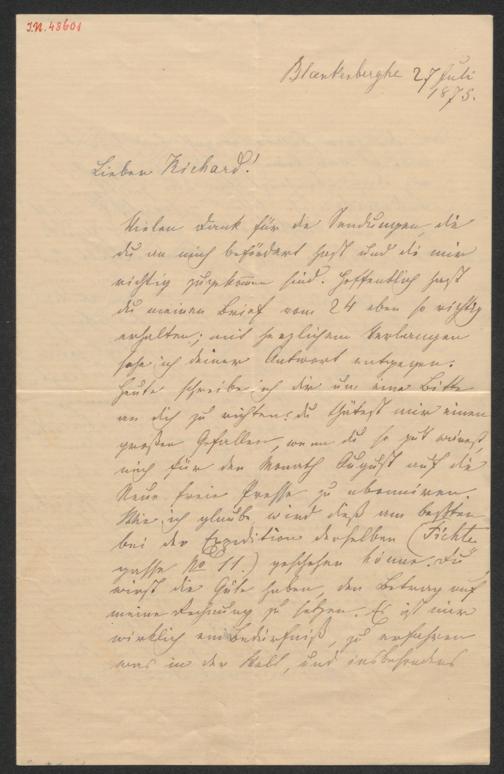 I.N. 48601
Blankenberghe 27 Juli
1875.
Lieber Richard!
Vielen Dank für die Sendungen, die
du an mich befördert hast und die mir
richtig zugekommen sind. Hoffentlich hast
du meinen Brief vom 24 eben so richtig
erhalten; mit herzlichem Verlangen
sehe ich deiner Antwort entgegen.
Heute schreibe ich dir um eine Bitte
an dich zu richten: du thätest mir einen
großen Gefallen, wenn du so gut wärest,
mich für den Monath August auf die
Neue freie Presse zu abonniren.
Wie ich glaube wird dieß am besten
bei der Expedition derselben (Fichte
gasse No 11.) geschehen können. Du
wirst die Güte haben, den Betrag auf
meine Rechnung zu setzen. Es ist mir
wirklich ein Bedürfniß, zu erfahren
was in der Welt, und insbesonders